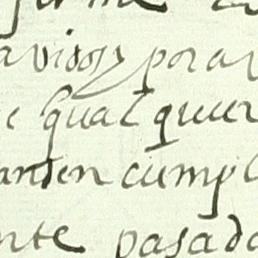 avisos por av
e qualquier
anden cumpl
nte pasado